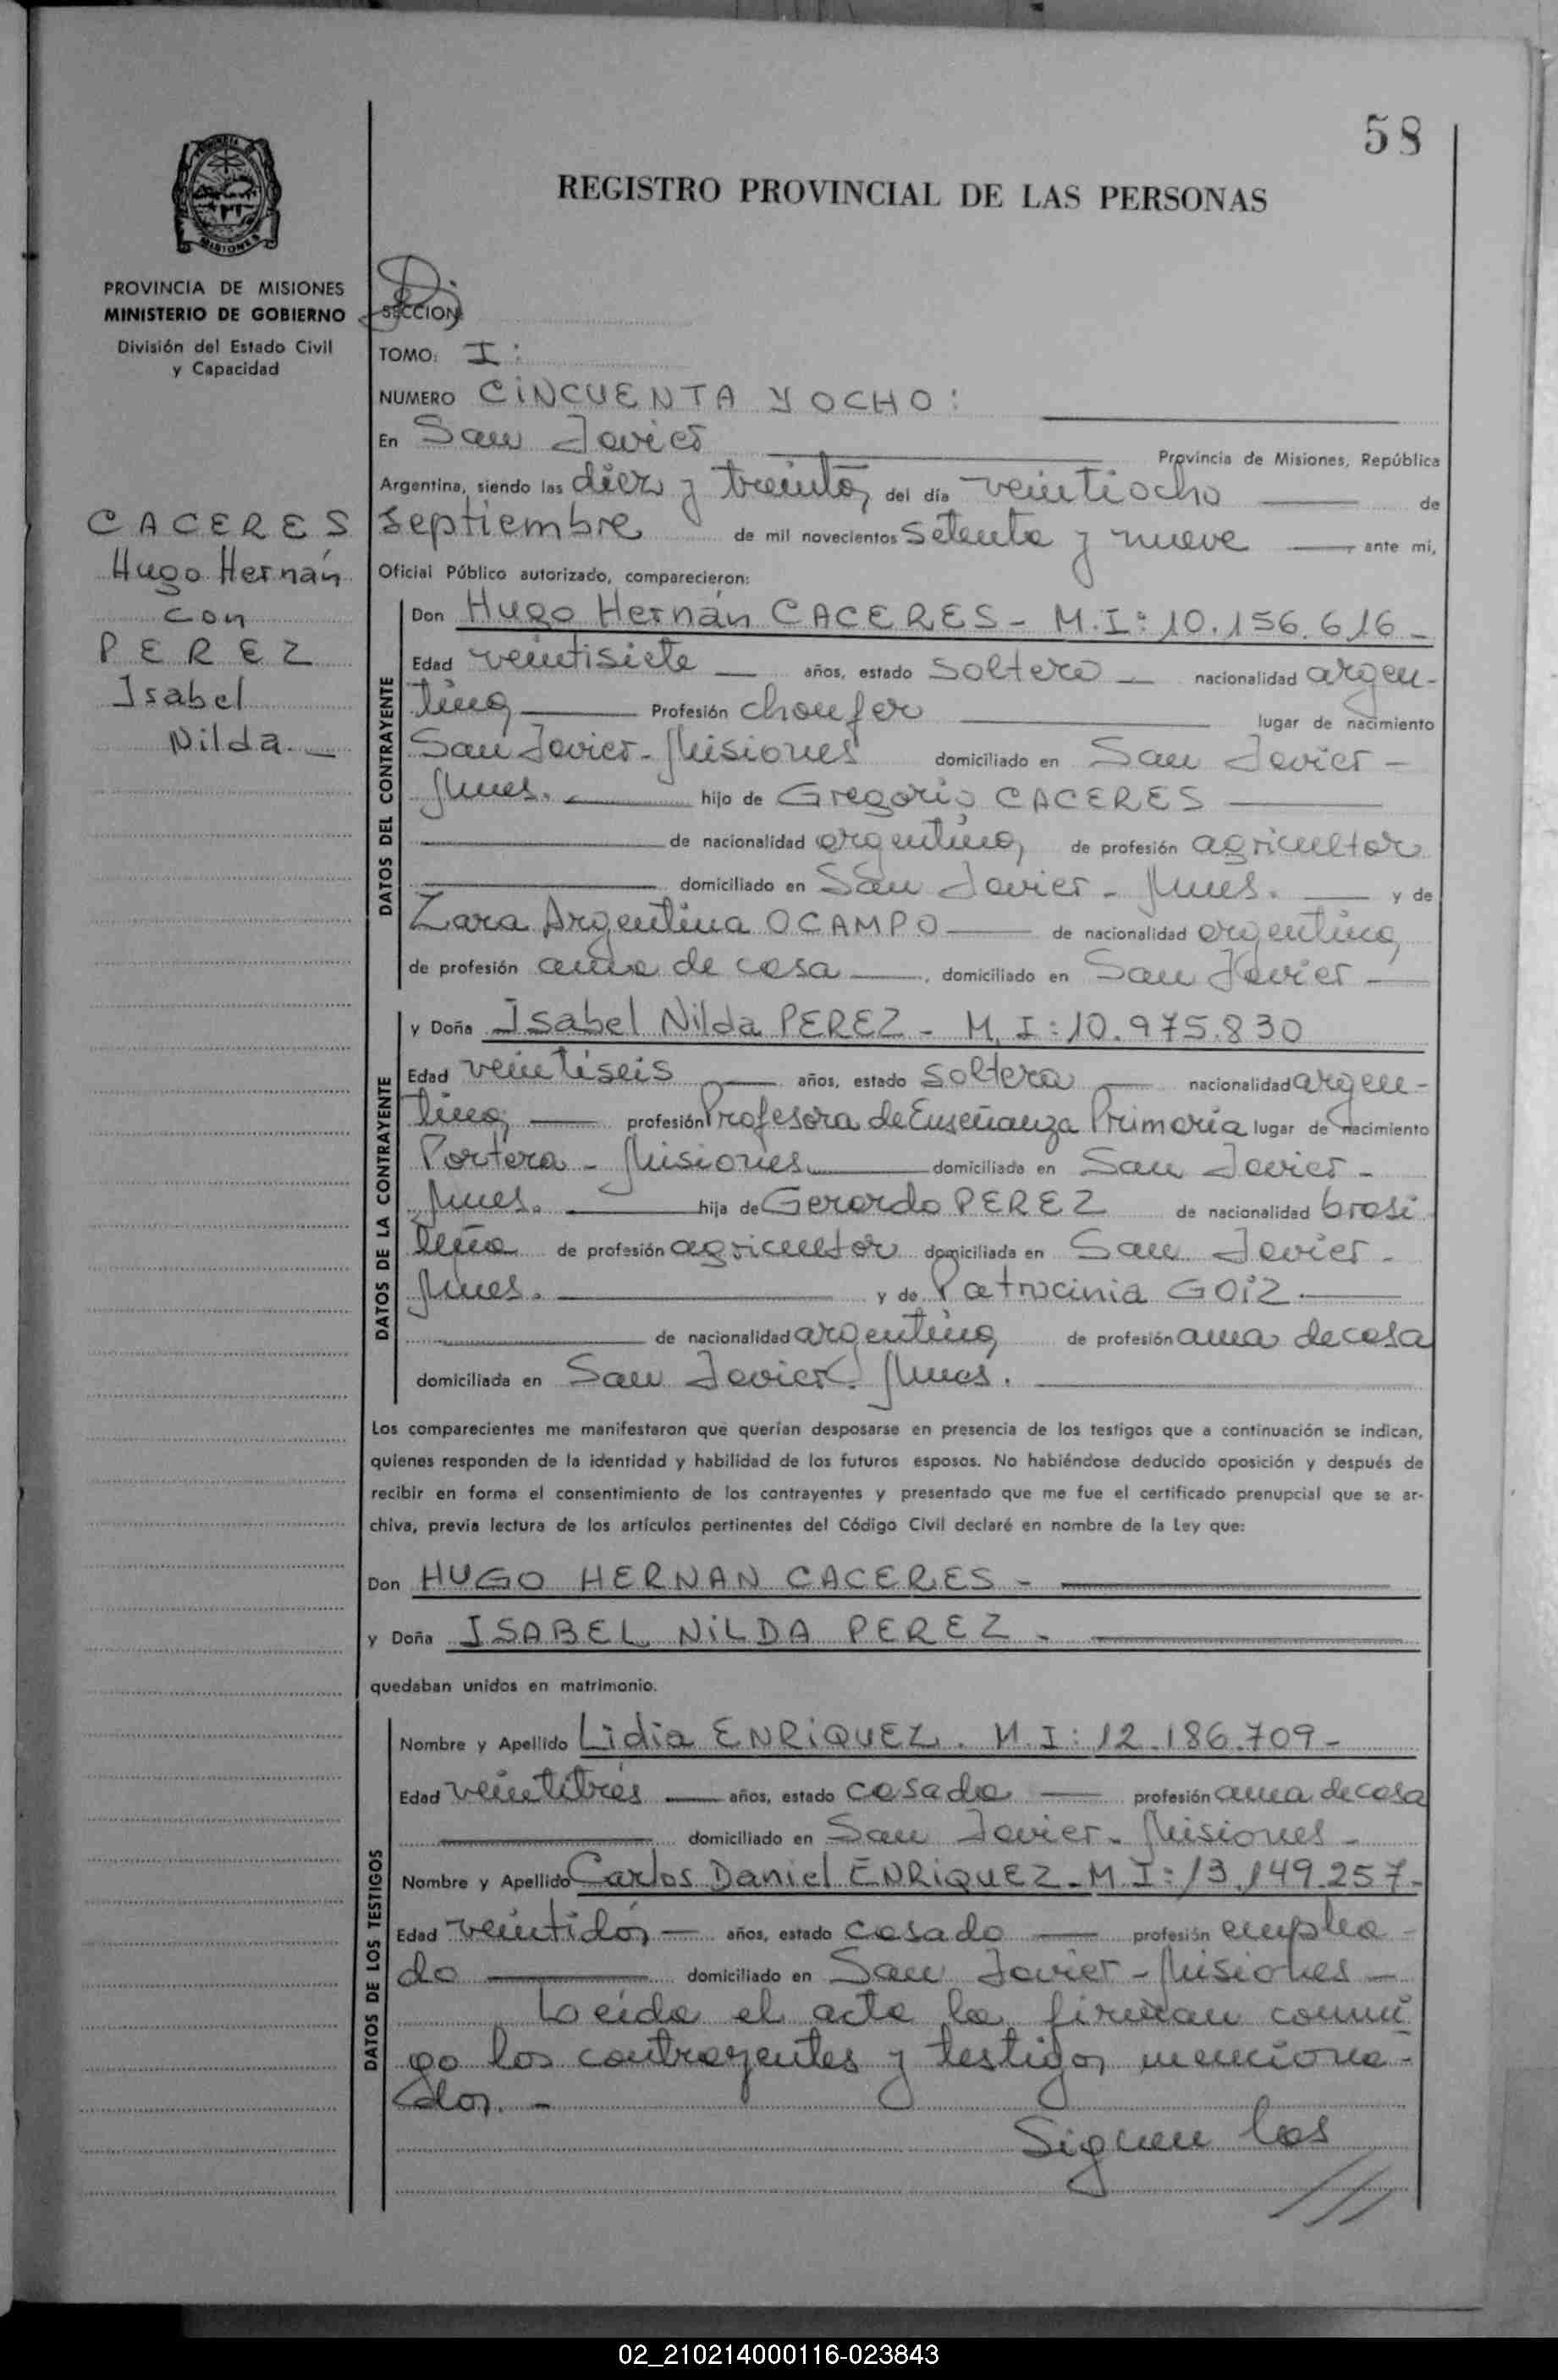 58
REGISTRO PROVINCIAL DE LAS PERSONAS
PROVINCIA DE MISIONES
MINISTERIO DE GOBIERNO
División del Estado Civil
y Capacidad
CACERES
Hugo Hernán
con
PEREZ
Isabel
Nilda.
SECCION
TOMO: I:
NUMERO CINCUENTA Y OCHO:
En San Javier Provincia de Misiones, República
Argentina, siendo las diez y treinta, del día veintiocho de
septiembre de mil novecientos setenta y nueve ante mi,
Oficial Público autorizado, comparecieron:
DATOS DEL CONTRAYENTE
Don Hugo Hernán CACERES - M.I: 10.156.616 -
Edad veintisiete años, estado soltero nacionalidad argen-
tina, Profesión choufer lugar de nacimiento
San Javier - Misiones domiciliado en San Javier -
Mnes. hijo de Gregorio CACERES
de nacionalidad argentina, de profesión agricultor
domiciliado en San Javier - Mnes. y de
Zara Argentina OCAMPO de nacionalidad argentina,
de profesión ama de casa, domiciliado en San Javier
DATOS DE LA CONTRAYENTE
y Doña Isabel Nilda PEREZ - M.I: 10.975.830
Edad veintiseis años, estado soltera nacionalidad argen-
tina, profesión Profesora de Enseñanza Primaria lugar de nacimiento
Portera - Misiones domiciliada en San Javier -
Mnes. hija de Gerardo PEREZ de nacionalidad brasi
leña de profesión agricultor domiciliada en San Javier -
Mnes. y de Patrocinia GOiZ
de nacionalidad argentina, de profesión ama de casa
domiciliada en San Javier. Mnes.
Los comparecientes me manifestaron que querían desposarse en presencia de los testigos que a continuación se indican,
quienes responden de la identidad y habilidad de los futuros esposos. No habiéndose deducido oposición y después de
recibir en forma el consentimiento de los contrayentes y presentado que me fue el certificado prenupcial que se ar-
chiva, previa lectura de los artículos pertinentes del Código Civil declaré en nombre de la Ley que:
Don HUGO HERNAN CACERES -
y Doña ISABEL NILDA PEREZ -
quedaban unidos en matrimonio.
DATOS DE LOS TESTIGOS
Nombre y Apellido Lidia ENRIQUEZ. M.I: 12.186.709 -
Edad veintitrés años, estado casada profesión ama de casa
domiciliado en San Javier - Misiones -
Nombre y Apellido Carlos Daniel ENRIQUEZ - M.I: 13.149.257 -
Edad veintidós años, estado casado profesión emplea-
do domiciliado en San Javier - Misiones
Leída el acta la firman conmi
go los contrayentes y testigos menciona-
dos. -
Siguen las
///
02_210214000116-023843